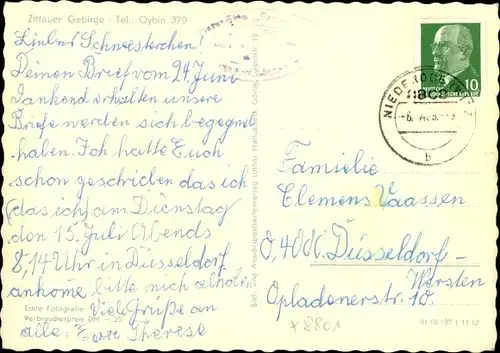 Zittauer Gebirge - Tel.: Oybin 379
Liebes Schwesterchen!
Deinen Brief vom 24 Juni
dankend erhalten unsere
Briefe werden sich begegnet
haben. Ich hatte Euch
schon geschrieben das ich
(das ich) am Dienstag
den 15. Juli Abends
8,14 Uhr in Düsseldorf
ankome bitte mich abholen
Viele Grüße an
alle. Eure Therese
Echte Fotografie
Verbraucherpreis DM -,25
Bild- und Ansichtspostkartenverlag Lothar
10
NIEDERODERWITZ
8802
b
Familie
Clemens Vaassen
D,4000 Düsseldorf-
Wersten
Opladenerstr. 10.
x 8801